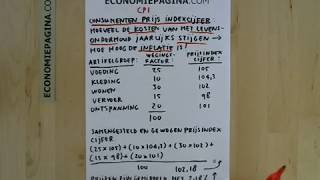 ECONOMIEPAGINA.COM
CPI
CONSUMENTEN PRIJS INDEXCIJFER:
HOEVEEL DE KOSTEN VAN HET LEVENS-
ONDERHOUD JAARLIJKS STIJGEN →
HOE HOOG DE INFLATIE IS!
ARTIKELGROEP: WEGINGS- FACTOR: PRIJSINDEX CIJFER:
VOEDING 25 105
KLEDING 10 104,3
WONEN 30 102
VERVOER 15 98
ONTSPANNING 20 101
100
SAMENGESTELD EN GEWOGEN PRIJSINDEX
CIJFER
(25 x 105) + (10 x 104,3) + (30 x 102) +
(15 x 98) + (20 x 101)
100 = 102,18
PRIJZEN GEMIDDELD MET 2,18% ↑